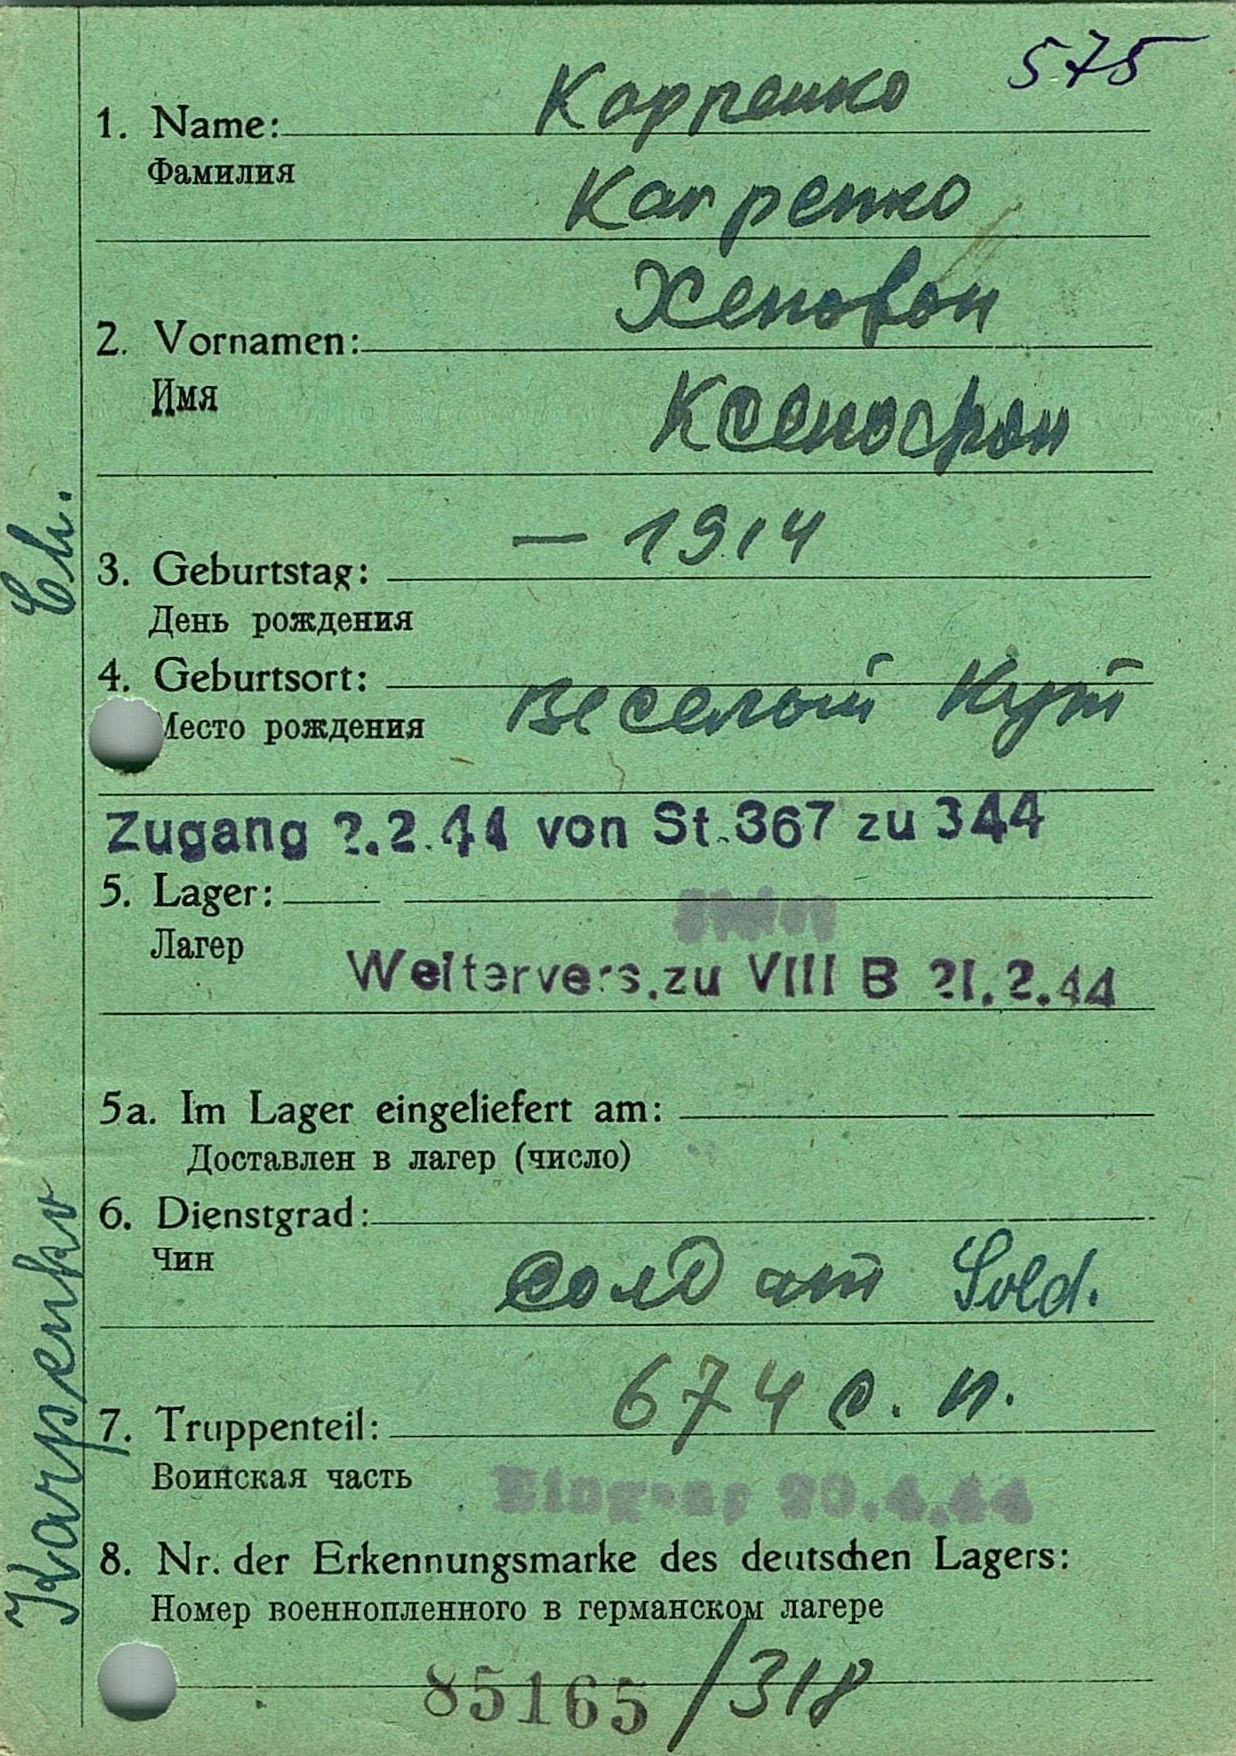 575
1. Name: Карпенко
Фамилия
Карпенко
2. Vornamen: Хеновон
Имя
Ксенофон
3. Geburtstag: — 1914
День рождения
4. Geburtsort: Веселый Кут
Место рождения
Zugang 2.2.44 von St.367 zu 344
5. Lager:
Лагер
Weitervers.zu VIII B 21.2.44
5a. Im Lager eingeliefert am:
Доставлен в лагер (число)
6. Dienstgrad:
Чин
солдат Sold.
7. Truppenteil: 674 с. п.
Воинская часть
Eingang 20.4.44
8. Nr. der Erkennungsmarke des deutschen Lagers:
Номер военнопленного в германском лагере
85165 /318
Karpenko